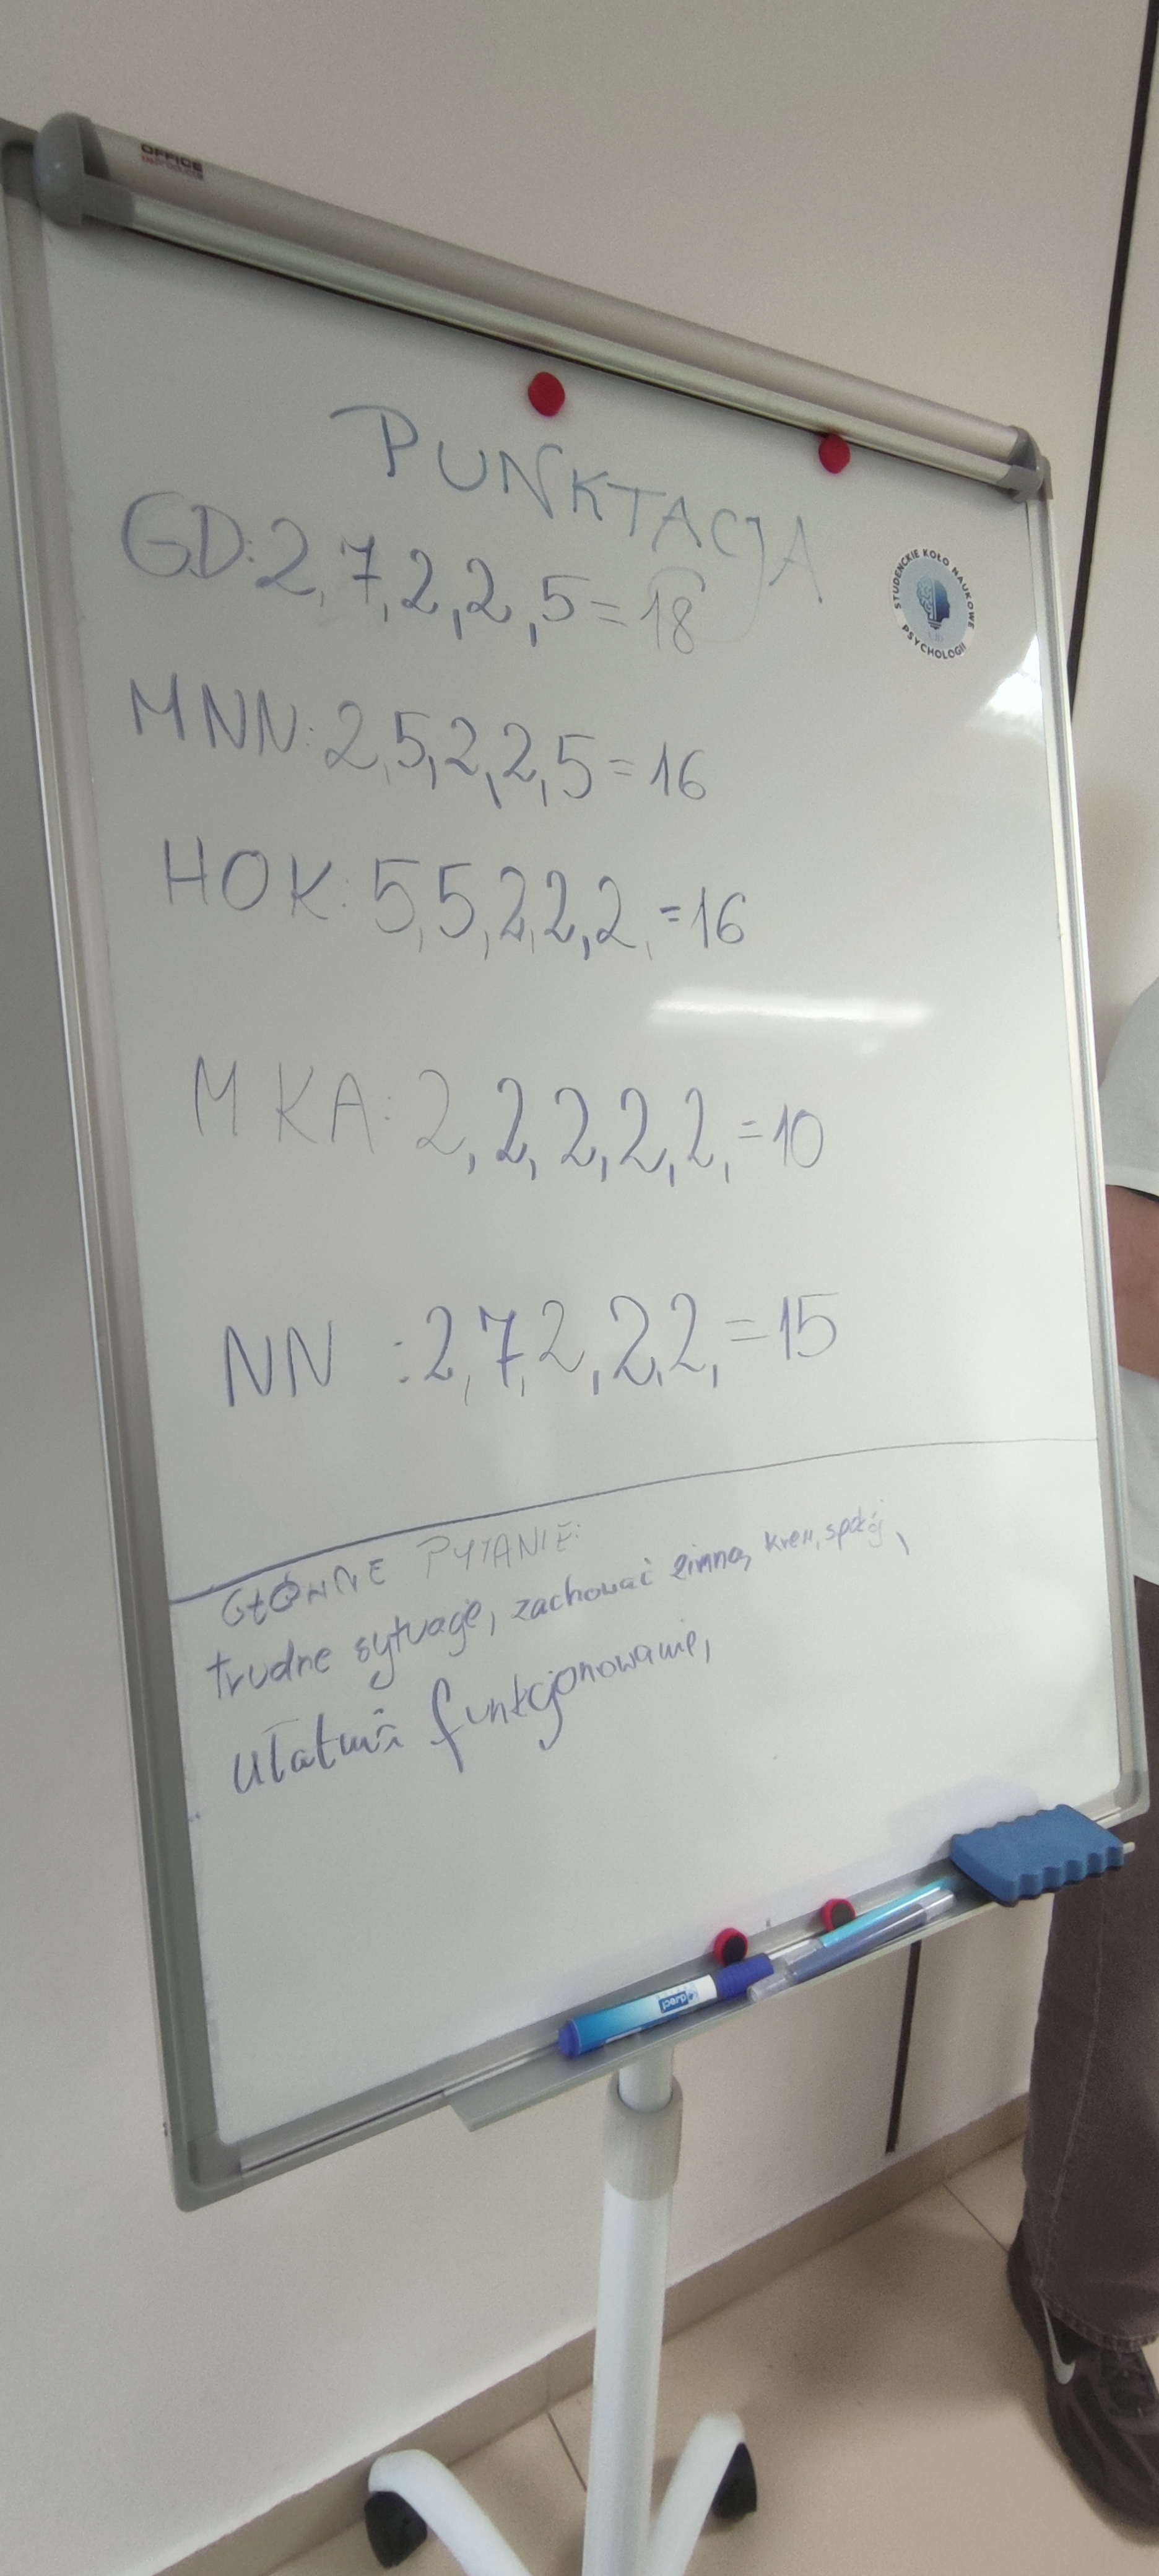 OFFICE
PUNKTACJA
GD: 2, 7, 2, 2, 5 = 18
STUDENCKIE KOŁO NAUKOWE
PSYCHOLOGII
MNN: 2, 5, 2, 2, 5 = 16
HOK: 5, 5, 2, 2, 2, = 16
MKA: 2, 2, 2, 2, 2, = 10
NN : 2, 7, 2, 2, 2, = 15
GŁÓWNE PYTANIE:
trudne sytuacje, zachować zimną krew, spokój,
ułatwia funkcjonowanie,